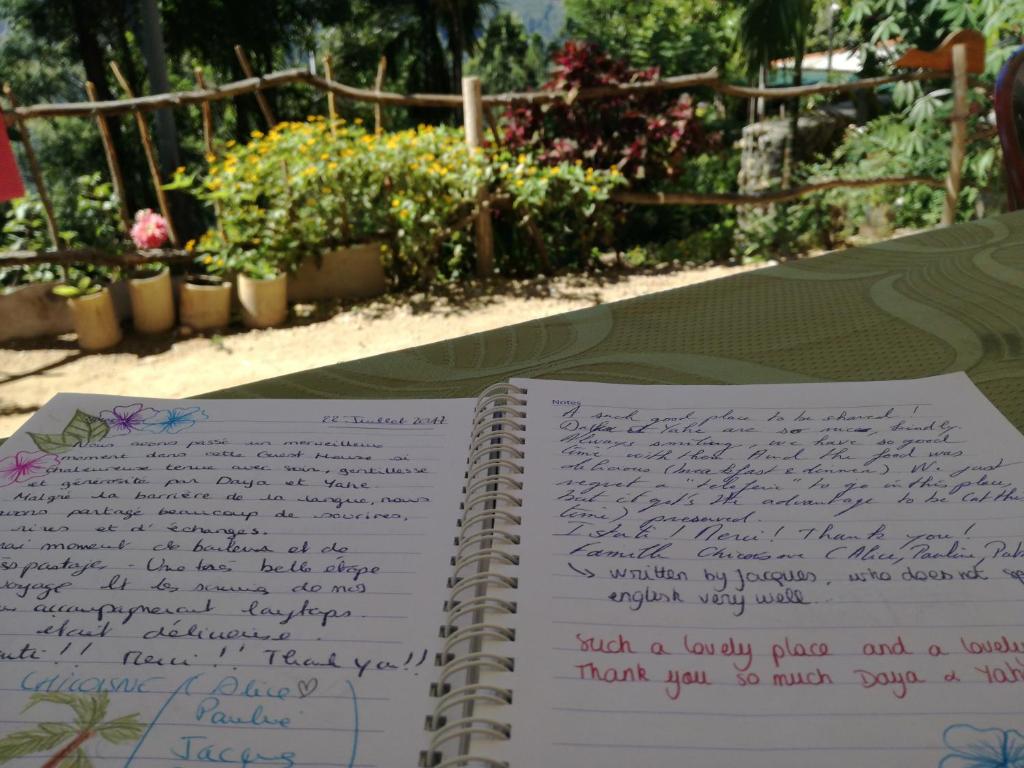 22 Juillet 2017
Nous avons passé un merveilleux
moment dans cette Guest House si
chaleureuse tenue avec soin, gentillesse
et générosité par Daya et Yahe
Malgré la barrière de la langue, nous
avons partagé beaucoup de sourires,
rires et d'échanges.
moment de et de
partage - Une très belle étape
voyage Et les de nos
accompagneront longtemps.
était délicieuse.
Merci !! Thank you !!
CHICOISNE (Alice ♡
Pauline
Jacques
Notes
A such good place to be shared !
Daya et Yahe are so nice, friendly.
Always smiling, we have so good
time with them And the food was
delicious (breakfast & dinner) We just
regret a "teleferic" to go in this place,
but it get's the advantage to be (at the
time) preserved.
Istuti ! Merci ! Thank you !
Famille Chicoisne (Alice, Pauline,
↳ written by Jacques, who does not
english very well.
Such a lovely place and a lovely
Thank you so much Daya &